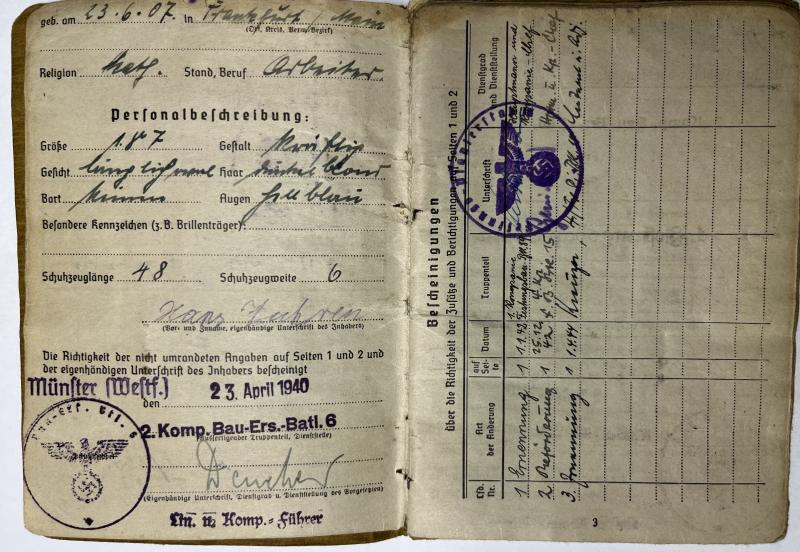 geb. am 23.6.07 in Frankfurt/Main
(Ort, Kreis, Verw.-Bezirk)
Religion kath. Stand, Beruf Arbeiter
Personalbeschreibung:
Größe 1.87 Gestalt kräftig
Gesicht länglich oval Haar dunkelblond
Bart keinen Augen hellblau
Besondere Kennzeichen (z.B. Brillenträger):
Schuhzeuglänge 48 Schuhzeugweite 6
Hans
(Vor- und Zuname, eigenhändige Unterschrift des Inhabers)
Die Richtigkeit der nicht umrandeten Angaben auf Seiten 1 und 2 und
der eigenhändigen Unterschrift des Inhabers bescheinigt
Münster (Westf.) den 23. April 1940
2. Komp. Bau-Ers.-Batl. 6
(Ausfertigender Truppenteil, Dienststelle)
(Eigenhändige Unterschrift, Dienstgrad u. Dienststellung des Vorgesetzten)
Ltn. u. Komp.-Führer
Bescheinigungen
über die Richtigkeit der Zusätze und Berichtigungen auf Seiten 1 und 2
Lfd. Nr. Art der Änderung auf Seite Datum Truppenteil Unterschrift Dienstgrad und Dienststellung
1 Ernennung 1 1.1.42 1. Kompanie Hauptmann und Kompanie-Chef
2 Beförderung 1 25.12.42
3. Ernennung 1 1.4.44
3